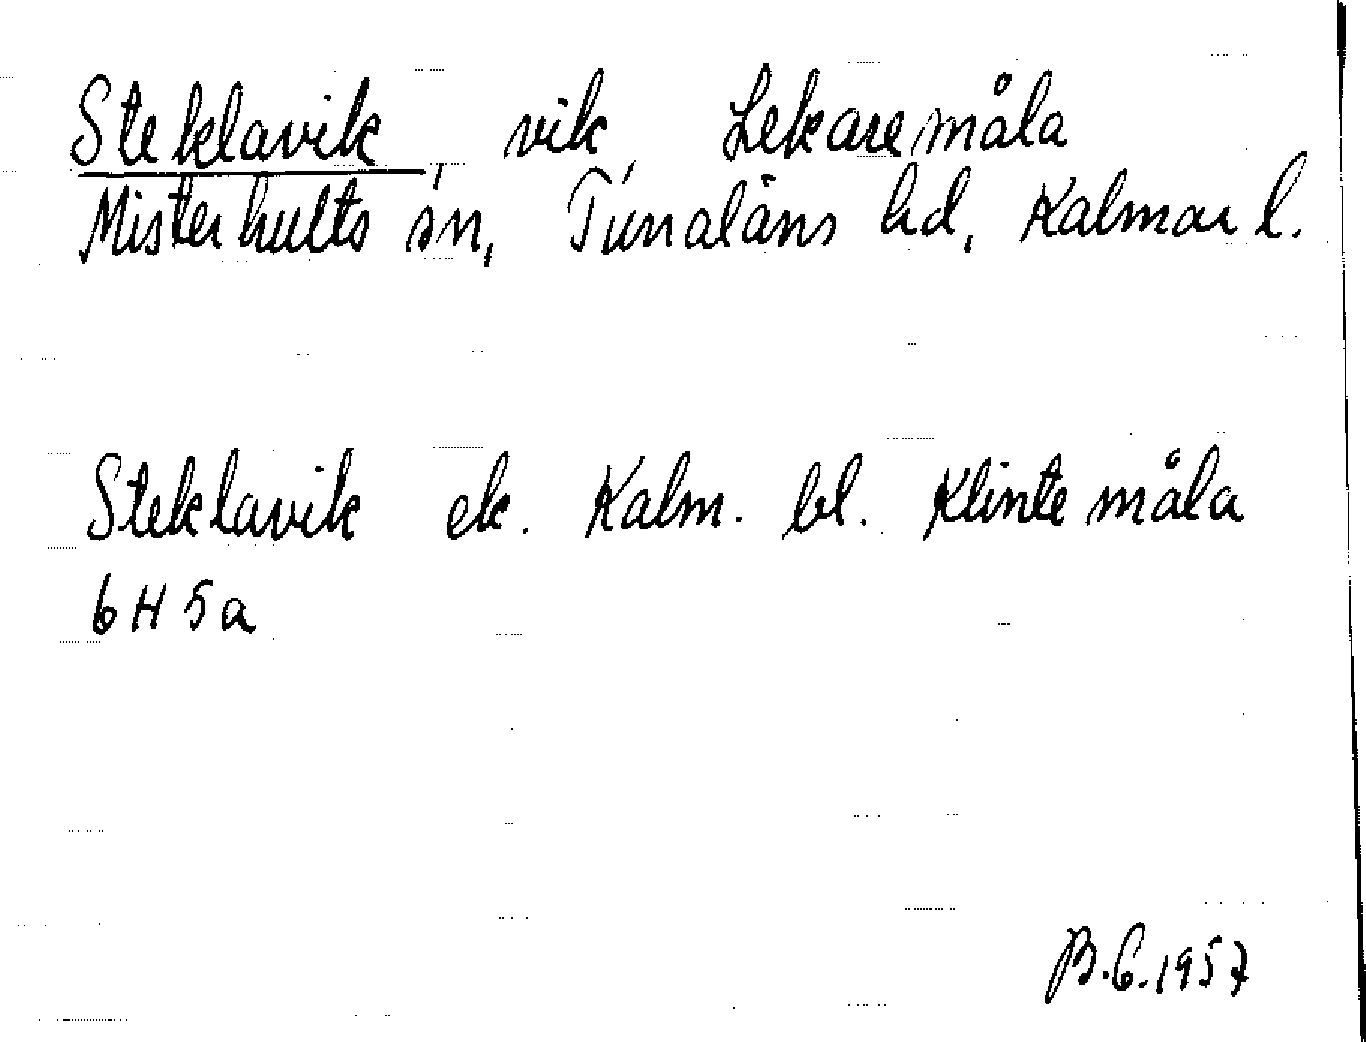 Steklavik, vik, Lekaremåla
Misterhults sn, Tunaläns hd, Kalmar l.
Steklavik ek. Kalm. bl. Klintemåla
6H5a
B.G.1957